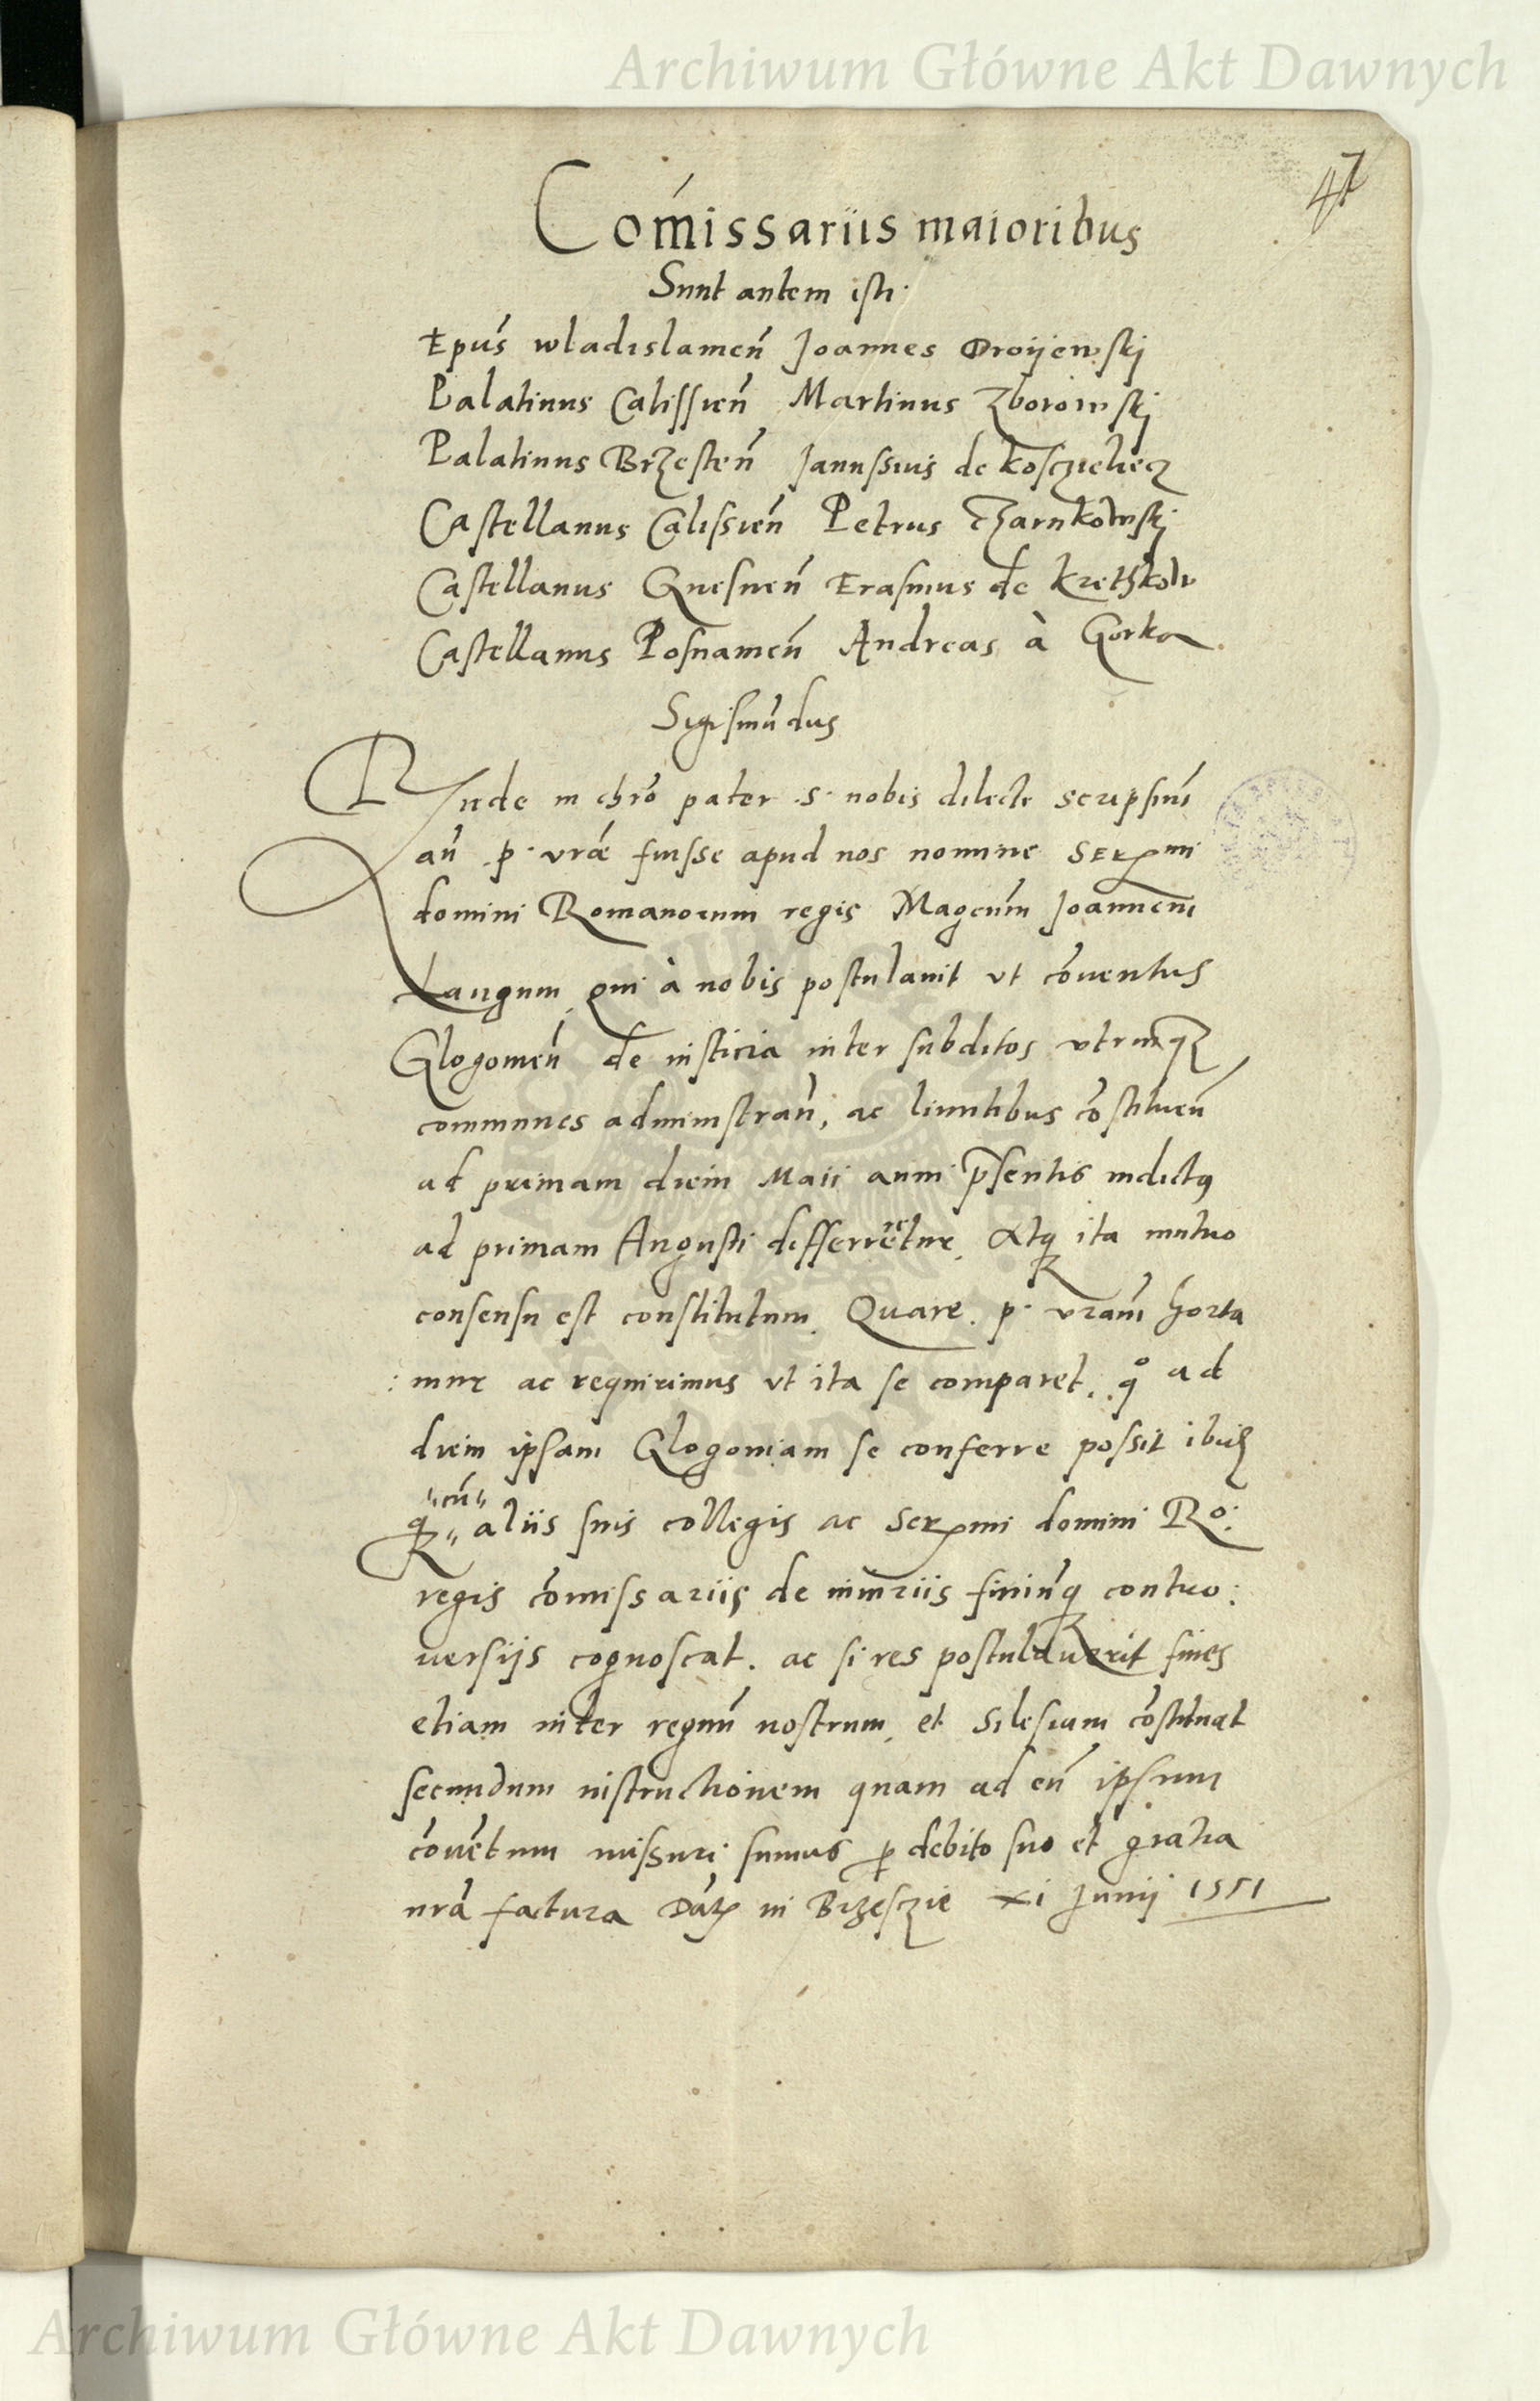 Archiwum Główne Akt Dawnych
47
Com̄issariis maioribus
Sunt autem isti·
Epus̄ wladislauien̄ Joannes Droijewskij
Palatinus Calissien̄ Martinus Zborowskij
Palatinus Brzesten̄ Janussius de Kosczielecz
Castellanus Calissien̄ Petrus Czarnkowskij
Castellanus Gnesnen̄ Erasmus de Krethkow
Castellanus Posnanien̄ Andreas à Gorka
Sigismūdus
Rnde in chr̄o pater .s. nobis dilecte scripsim̄
an̄ p. vrāe fuisse apud nos nomine Serᵐⁱ
domini Romanorum regis Magcūm Joannem
Langum, qui à nobis postulauit vt cōuentus
Glogouien̄ de iusticia inter subditos vtriusqȝ
communes administran̄, ac limitibus cōstituen̄
ad primam diem Maii anni p̄sentis indictus
ad primam Augusti differretur. Atqȝ ita mutuo
consensu est constitutum. Quare. p. vram̄ horta
mur ac requirimus vt ita se comparet, qº ad
diem ipsam Glogouiam se conferre possit ibiȝ
"cū"
qȝ " aliis suis collegis ac Sermi domini Ro:
regis cōmissariis de iniuriis finiūqȝ contro:
uersijs cognoscat. ac si res postulauerit fines
etiam inter regnū nostrum, et Silesiam cōstituat
secundum instructionem quam ad eū ipsum
cōuētum missuri sumus p debito suo et gratia
nrā factura Datȝ in Brzesczie xi Junij 1551
Archiwum Główne Akt Dawnych